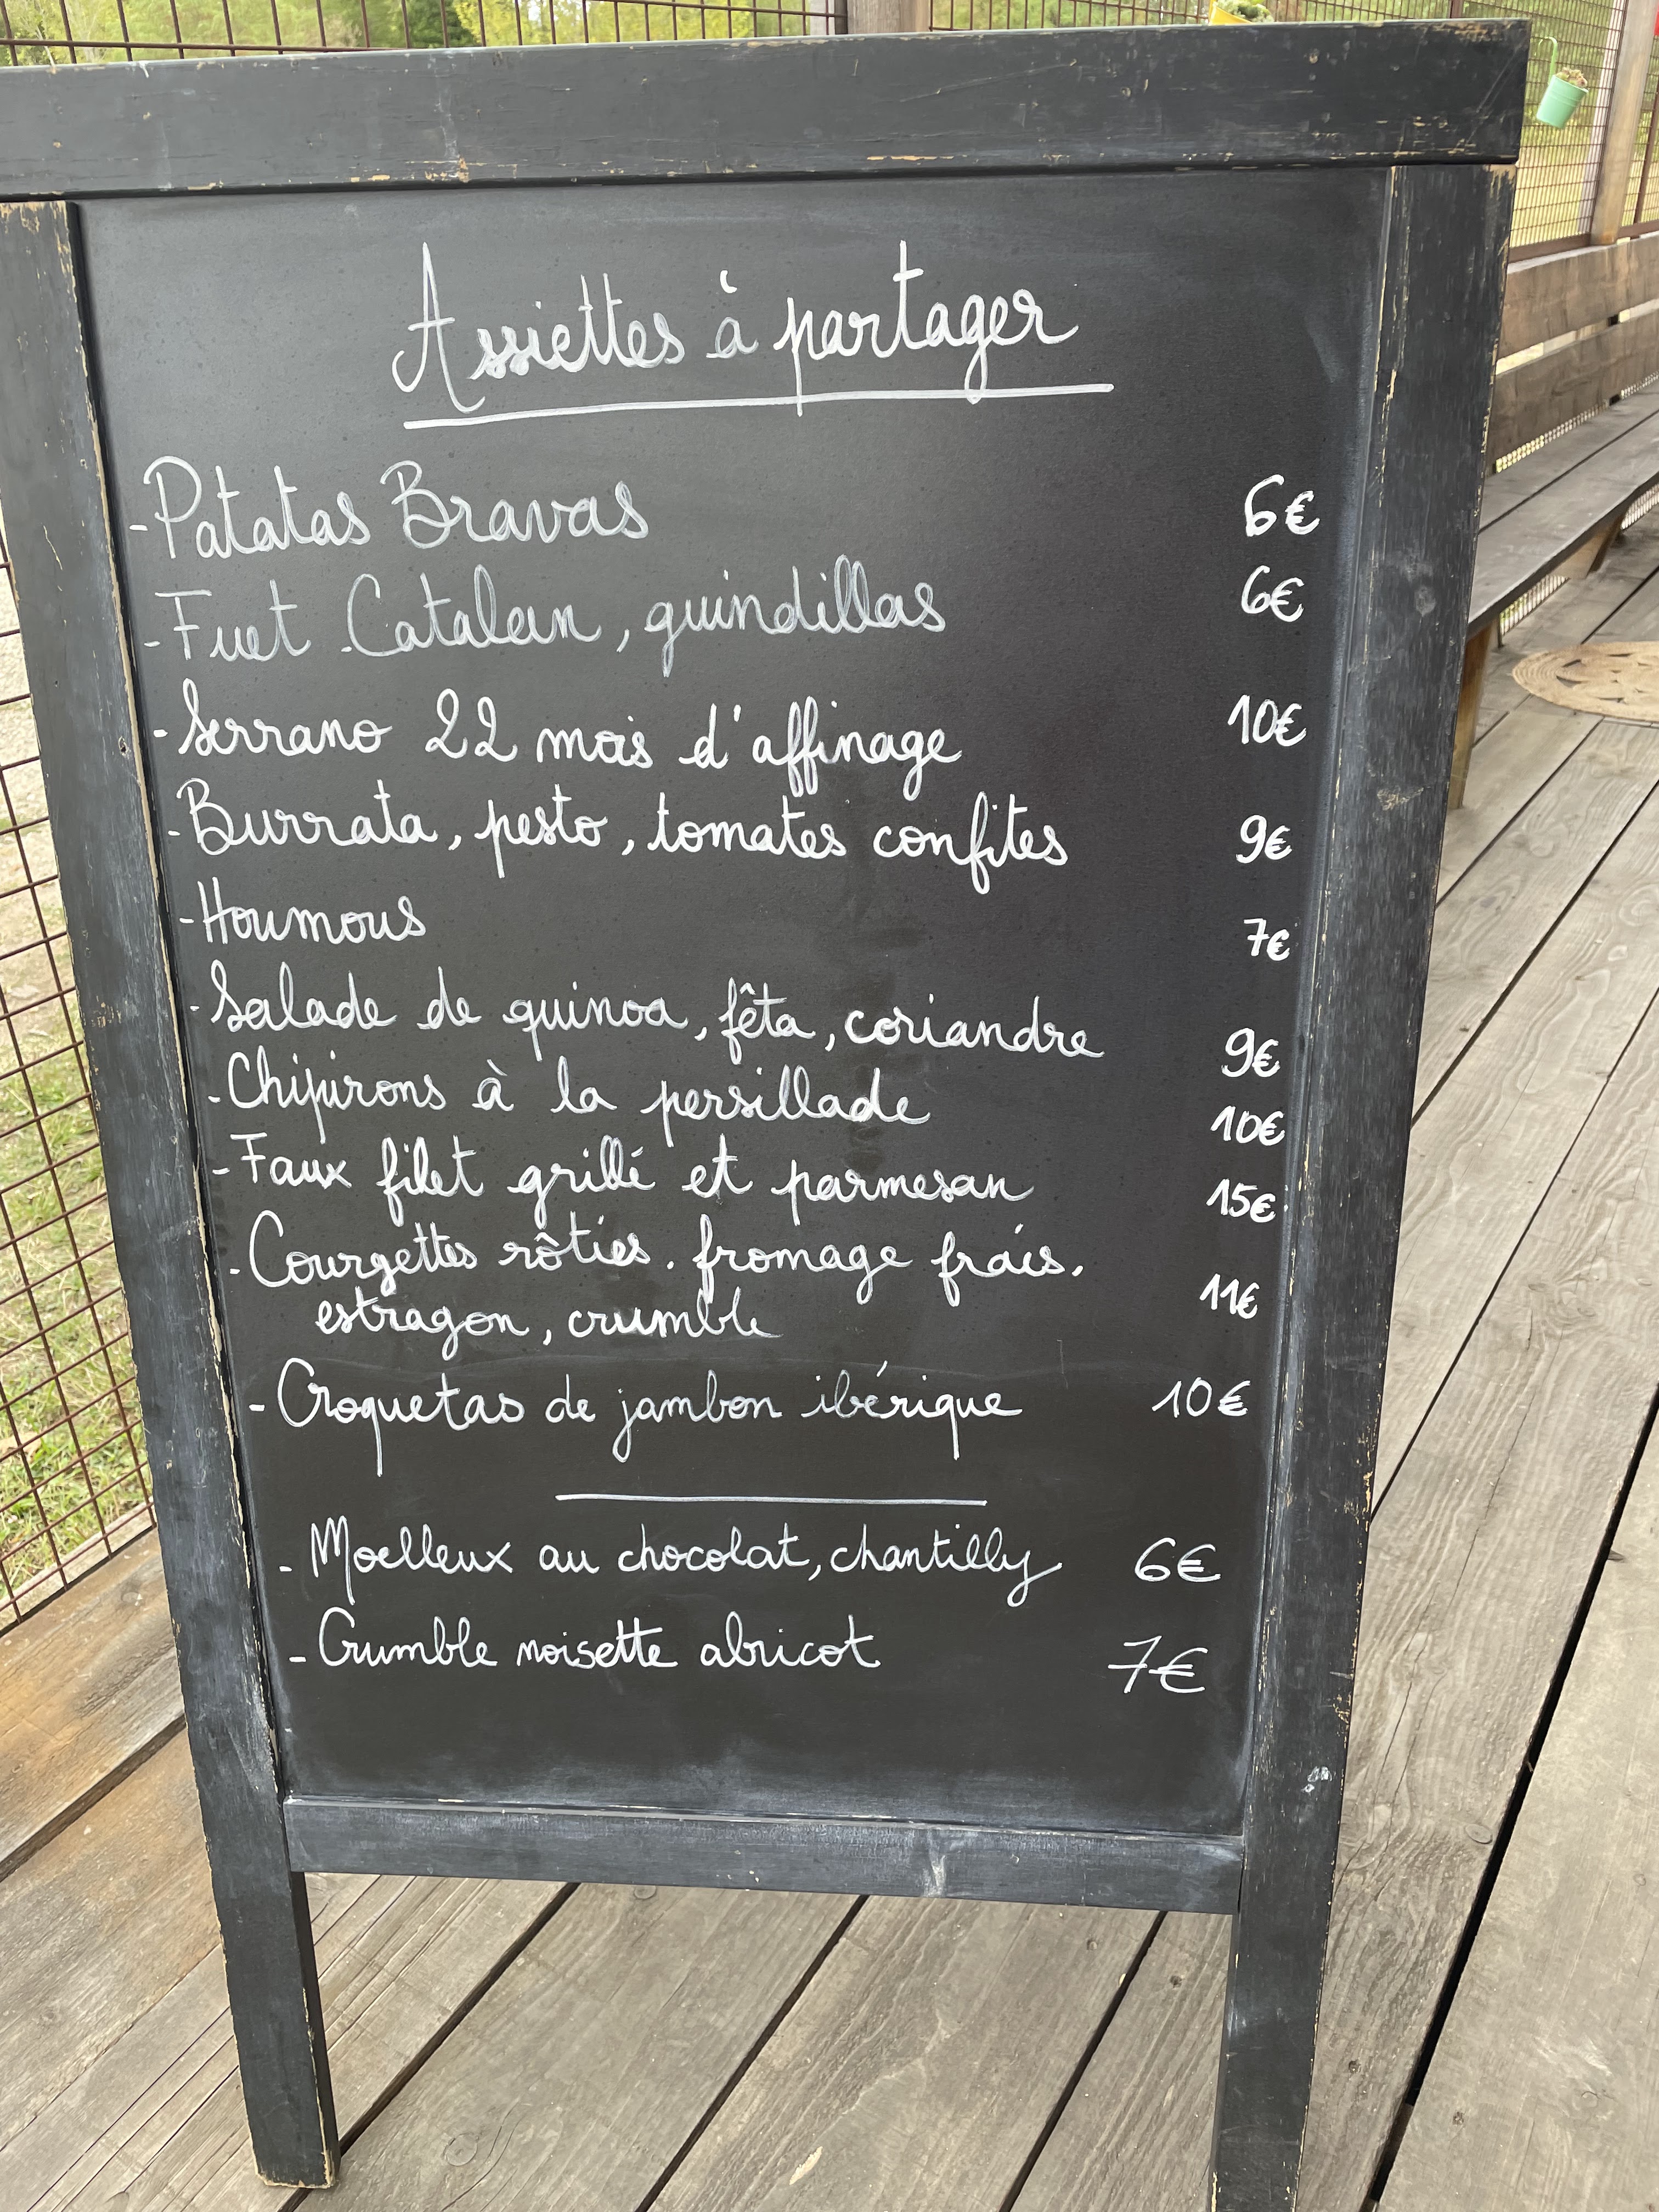 Assiettes à partager
-Patatas Bravas 6€
-Fuet Catalan, guindillas 6€
-Serrano 22 mois d'affinage 10€
-Burrata, pesto, tomates confites 9€
-Houmous 7€
-Salade de quinoa, fêta, coriandre 9€
-Chipirons à la persillade 10€
-Faux filet grillé et parmesan 15€
-Courgettes rôties, fromage frais,
estragon, crumble 11€
-Croquetas de jambon ibérique 10€
-Moelleux au chocolat, chantilly 6€
-Crumble noisette abricot 7€